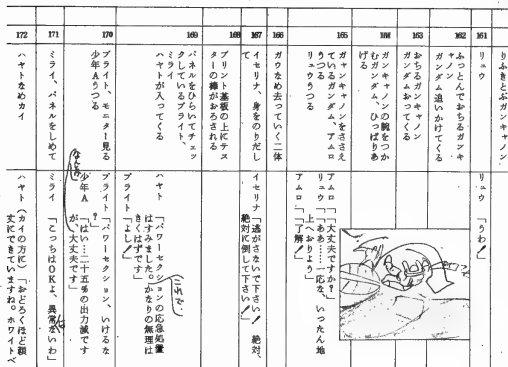 りふきとぶガンキャノン
161
リュウ
リュウ「うわ!」
162
ふっとんでおちるガンキャノン
ガンダム追いかけてくる
163
おちるガンキャノン
ガンダムおってくる
164
ガンキャノンの腕をつかむガンダム、ひっぱりあげる
165
ガンキャノンをささえているガンダム、アムロうつる
リュウうつる
アムロ「大丈夫ですか?」
リュウ「ああ……一応な、いったん地上へおりよう」
アムロ「了解!」
166
ガウなめ去っていく二体
167
イセリナ、身をのりだして
イセリナ「逃がさないで下さい! 絶対、絶対に倒して下さい!」
168
プリント基板の上にテスターの棒がおろされる
169
パネルをひらいてチェックしているブライト、ミライ
ハヤトが入ってくる
ハヤト「パワーセクションの応急処置はすみました。かなりの無理はきくはずです」
ブライト「よし!」
170
ブライト、モニター見る
少年Aうつる
ブライト「パワーセクション、いけるな?」
少年A「はい…二十五%の出力減ですが、大丈夫です」
171
ミライ、パネルをしめて
ミライ「こっちはOKよ、異常ないわ」
172
ハヤトなめカイ
ハヤト(カイの方に)「おどろくほど頑丈にできていますね。ホワイトベ